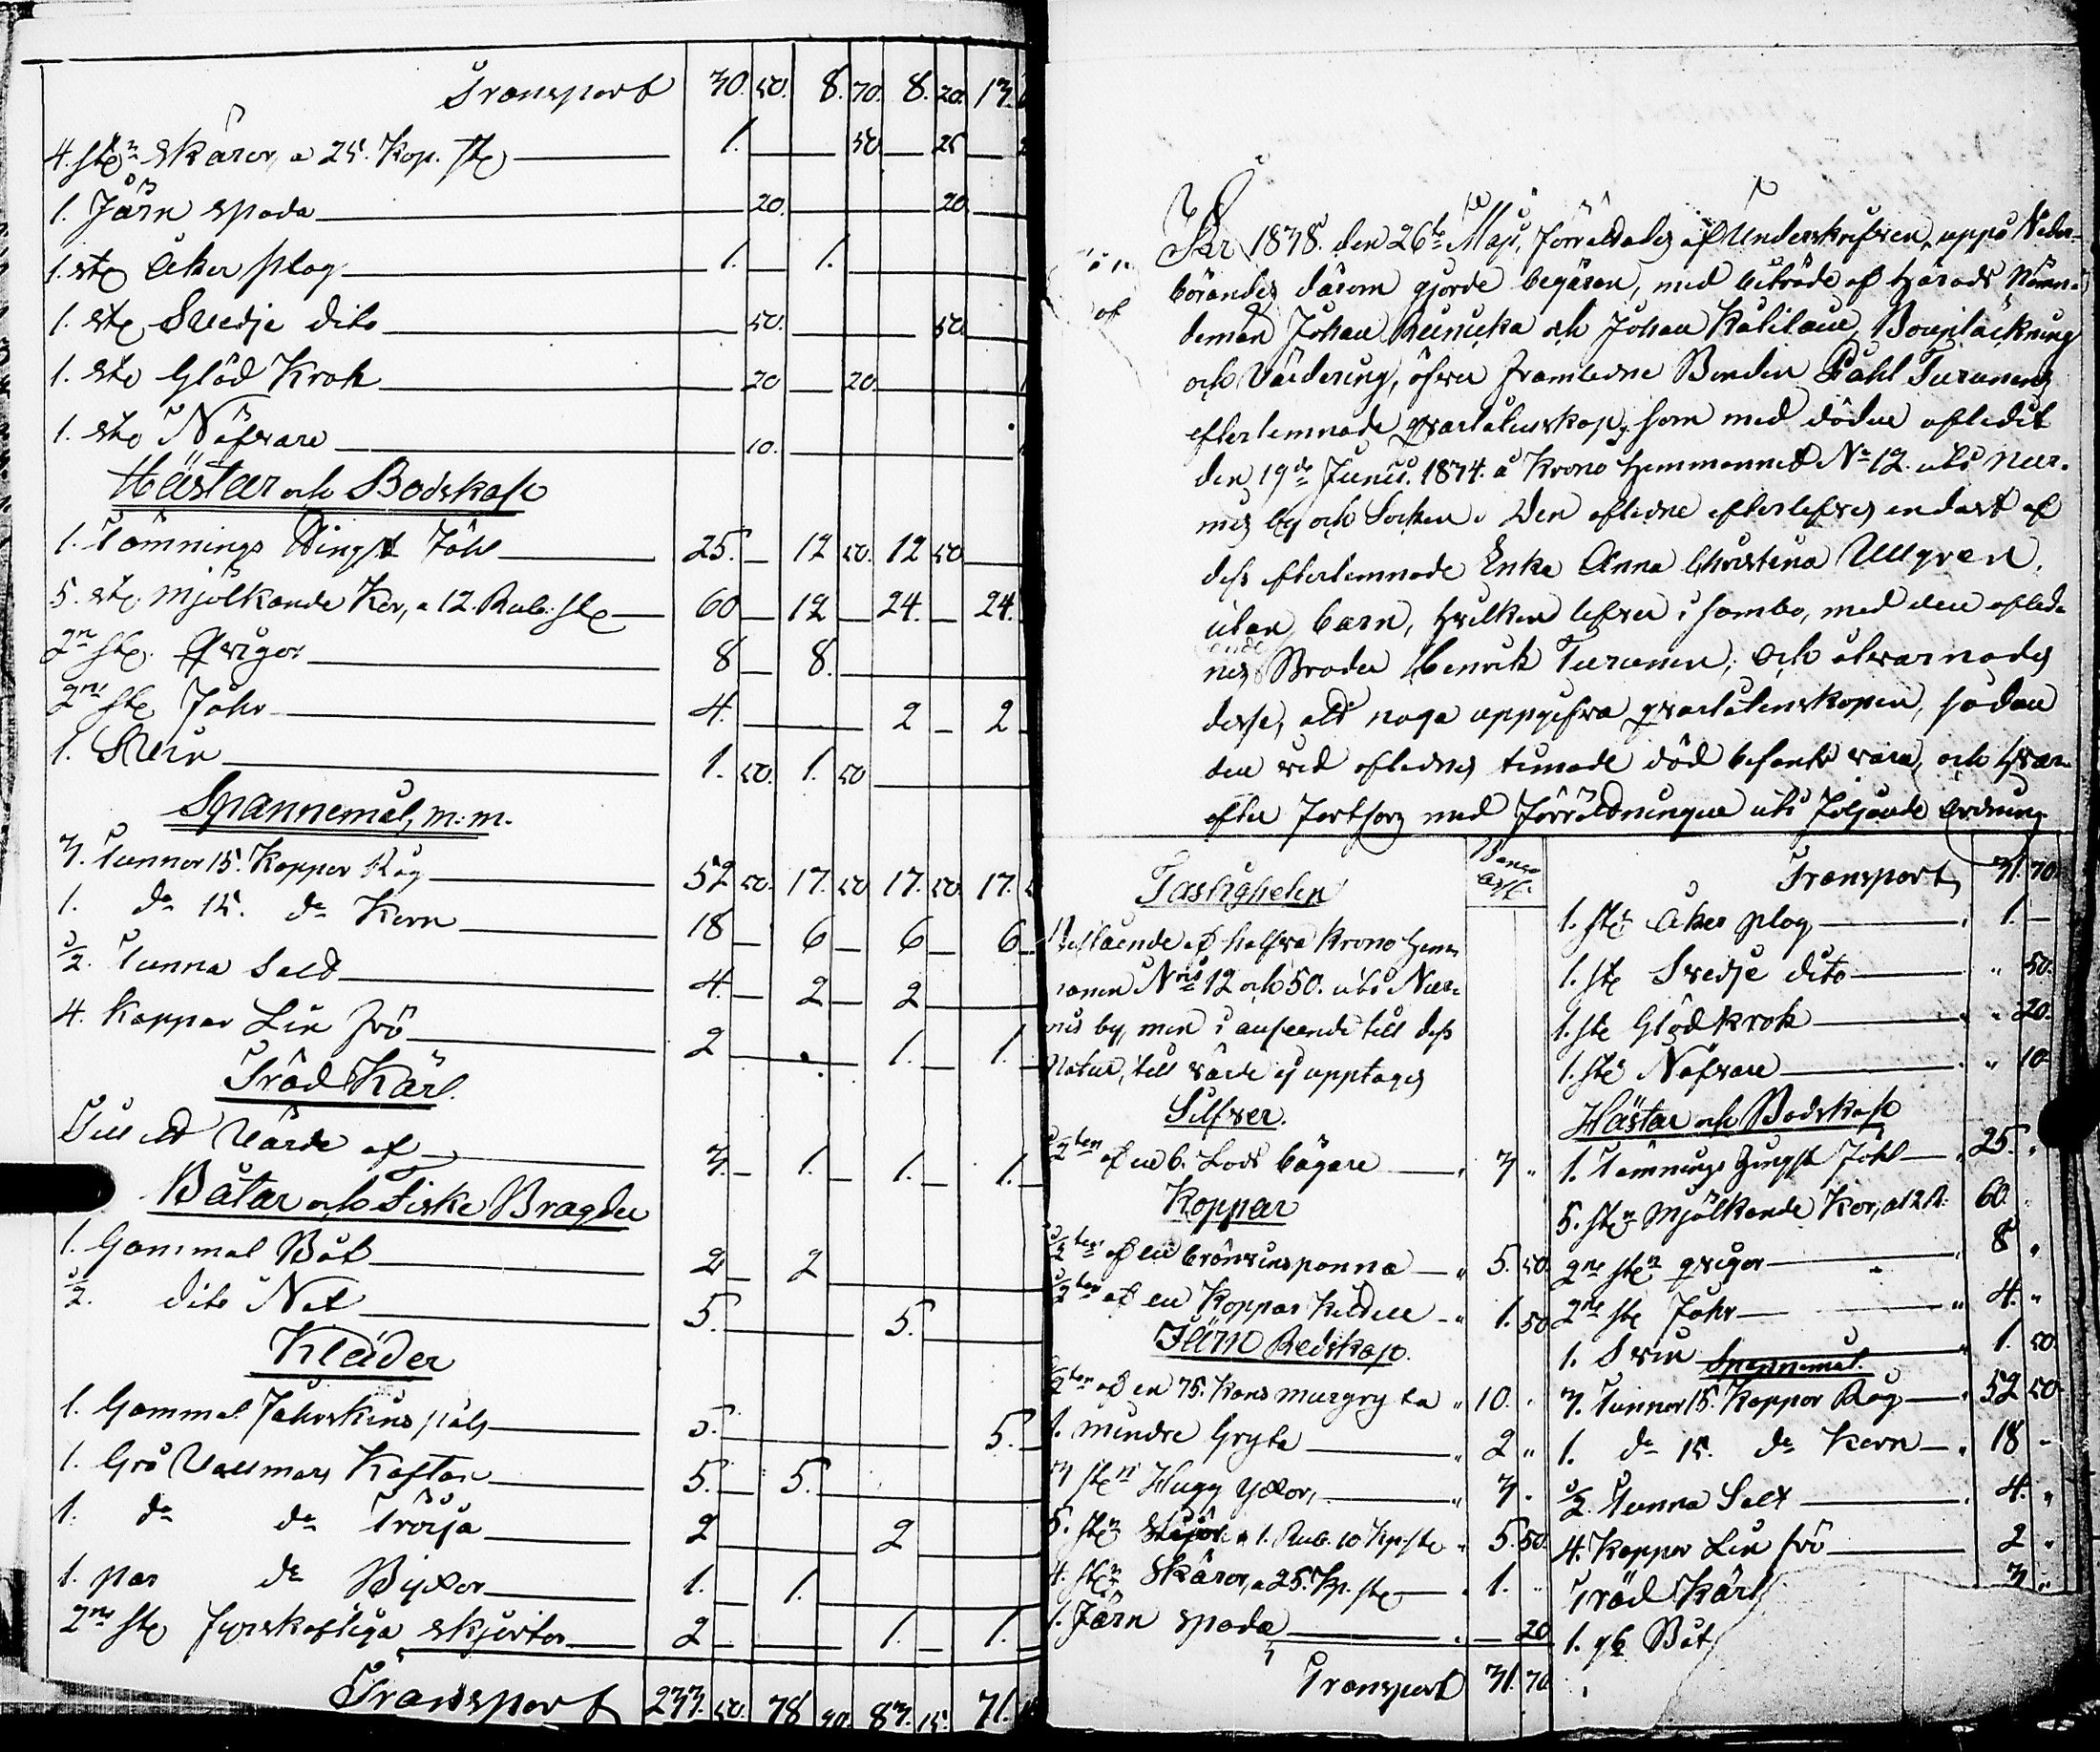 Transport 30. 50. 8. 70. 8. 20. 13.
4. stn skäror, a 25. Kop. st 1. 50 25
1. Järn spada 20. 20
1. st Åker plog 1. 1.
1. st Svedje dito 50. 50
1. st Glöd Krok 20 20
1. st Nafvare 10.
Hästar och Bodskap
1. Tämnings Hingst Fåhl 25. 12 50. 12 50
5. st mjölkande Kor, a 12. Rub. st 60 12 24. 24.
2ne st. Qvigor 8 8.
2ne st Fåhr 4. 2 2
1. Svin 1. 50. 1. 50
Spannemål, m.m.
3. Tunnor 15. Kappor Råg 52 50. 17. 50 17. 50 17.
1. do 15. do Korn 18 6 6 6
1/2. Tunna Salt 4. 2 2
4. Kappar Lin frö 2 1. 1.
Träd Kärl.
Till ett Värde af 3. 1. 1. 1.
Båtar och Fiske Bragder
1. Gammal Båt 2 2
1/2. dito Not 5. 5.
Kläder
1. Gammal Fåhrskins päls 5. 5.
1. Grå Vallmars Kaftan 5. 5.
1. do do Tröija 2 2
1. par do Byxor 1. 1.
2ne st fyrskaftiga skjortor 2 1. 1.
Transport 233. 50. 78 90 83. 15. 71.
År 1838. den 26te Maji, förrättades af Underskrifven, uppå Veder-
börandes därom gjorde begäran, med biträde af Härads Nämn-
deman Johan Reinicka och Johan Kälilaur, Bouptäckning
och Värdering, öfver framledne Bonden Påhl Turunens
efterlemnade qvarlåtenskap, som med döden afledit
den 19de Junii. 1834. å Krono Hemmanet No 12. uti Nur-
mis by och Socken. Den aflidne efterlefves endast af
dess efterlemnade Enka Anna Christina Ullgren,
utan barn, hvilken lefver i sambo, med den aflid-
nes Broder Henrik Turunen, och åtvarnades
desse, att noga uppgifva qvarlåtenskapen, sådan
den vid aflidnes timade död befants vara, och hvar-
efter fortfors med förrättningen uti följande ordning
Fastigheten
Banco
Bestående af halfva Krono Hem-
manen Nris 12 och 50. uti Nur-
mis by, men i anseende till dess
Natur, till värde ej upptages
Silfver.
1/2ten af en 6. Lods bägare 3
Koppar
1/2ten af en brönvinspanna 5. 50.
1/2ten af en Koppar Kittel 1. 50
Järn Redskap.
1/2ten af en 75. Kans murgryta 10.
1. mindre Gryta 2
3 stn Hugg yxor, 3
5. stn a 1. Rub. 10 Kp st 5. 50.
4. stn Skäror, a 25. Kp. st 1.
1. Järn spada 20
Transport 31. 70
Transport, 31. 70.
1. st Åker plog 1.
1. st Svedje dito 50.
1. st Glödkrok 20.
1. st Nafvare 10
Hästar och Bodskap
1. Tämnings Hingst Fåhl 25.
5. stn Mjölkande Kor, a 12 R. 60.
2ne stn qvigor 8
2ne st Fåhr 4.
1. Svin 1. 50.
Spannemål.
3. Tunnor 15. Kappor Råg 52 50
1. do 15. do Korn 18
1/2 Tunna Salt 4.
4. Kappor Lin frö 2
Träd Kärl 3
1. gl Båt